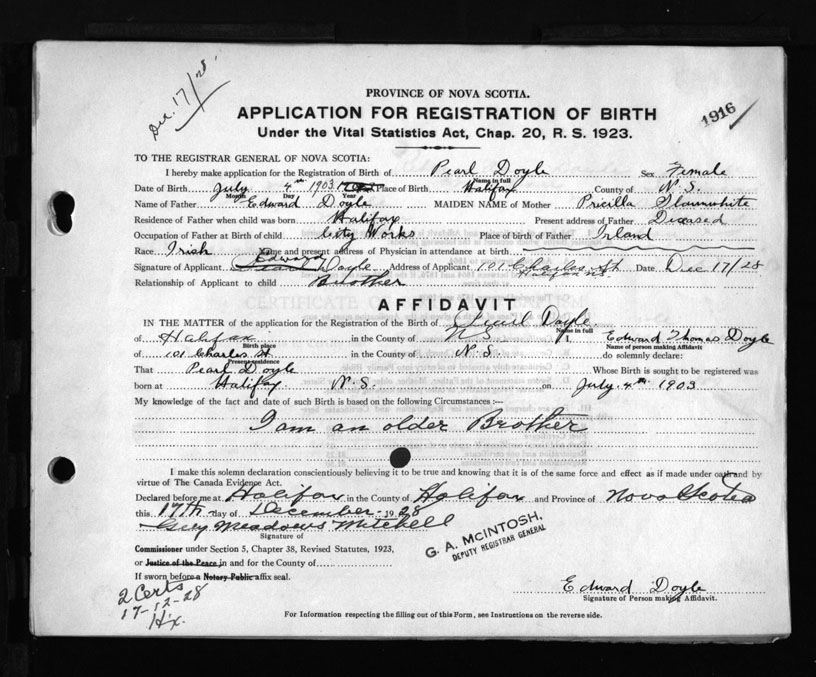 Dec. 17/28.
1916
PROVINCE OF NOVA SCOTIA.
APPLICATION FOR REGISTRATION OF BIRTH
Under the Vital Statistics Act, Chap. 20, R. S. 1923.
TO THE REGISTRAR GENERAL OF NOVA SCOTIA:
I hereby make application for the Registration of Birth of Pearl Doyle Sex Female
Name in full
Date of Birth July 4th 1903 Place of Birth Halifax County of N.S.
Month Day Year
Name of Father Edward Doyle MAIDEN NAME of Mother Pricilla
Residence of Father when child was born Halifax Present address of Father Diceased
Occupation of Father at Birth of child City Works Place of birth of Father Irland
Race Irish Name and present address of Physician in attendance at birth
Signature of Applicant Edward Pearl Doyle Address of Applicant 101 Charles St Halifax N.S. Date Dec 17/28
Relationship of Applicant to child Brother
AFFIDAVIT
IN THE MATTER of the application for the Registration of the Birth of Pearl Doyle.
Name in full
of Halifax in the County of N.S. I, Edward Thomas Doyle
Birth place Name of person making Affidavit
of 101 Charles St. in the County of N.S. do solemnly declare:
Present residence
That Pearl Doyle Whose Birth is sought to be registered was
born at Halifax N.S. on July 4th 1903.
My knowledge of the fact and date of such Birth is based on the following Circumstances :—
I am an older Brother
I make this solemn declaration conscientiously believing it to be true and knowing that it is of the same force and effect as if made under oath and by
virtue of The Canada Evidence Act.
Declared before me at Halifax in the County of Halifax and Province of Nova Scotia
this 17th day of December 1928
Guy Meadows Mitchell
Signature of
G. A. McINTOSH,
DEPUTY REGISTRAR GENERAL
Commissioner under Section 5, Chapter 38, Revised Statutes, 1923,
or Justice of the Peace in and for the County of
If sworn before a Notary Public affix seal.
2 Certs
17-12-28
Hx.
Edward Doyle
Signature of Person making Affidavit.
For Information respecting the filling out of this Form, see Instructions on the reverse side.